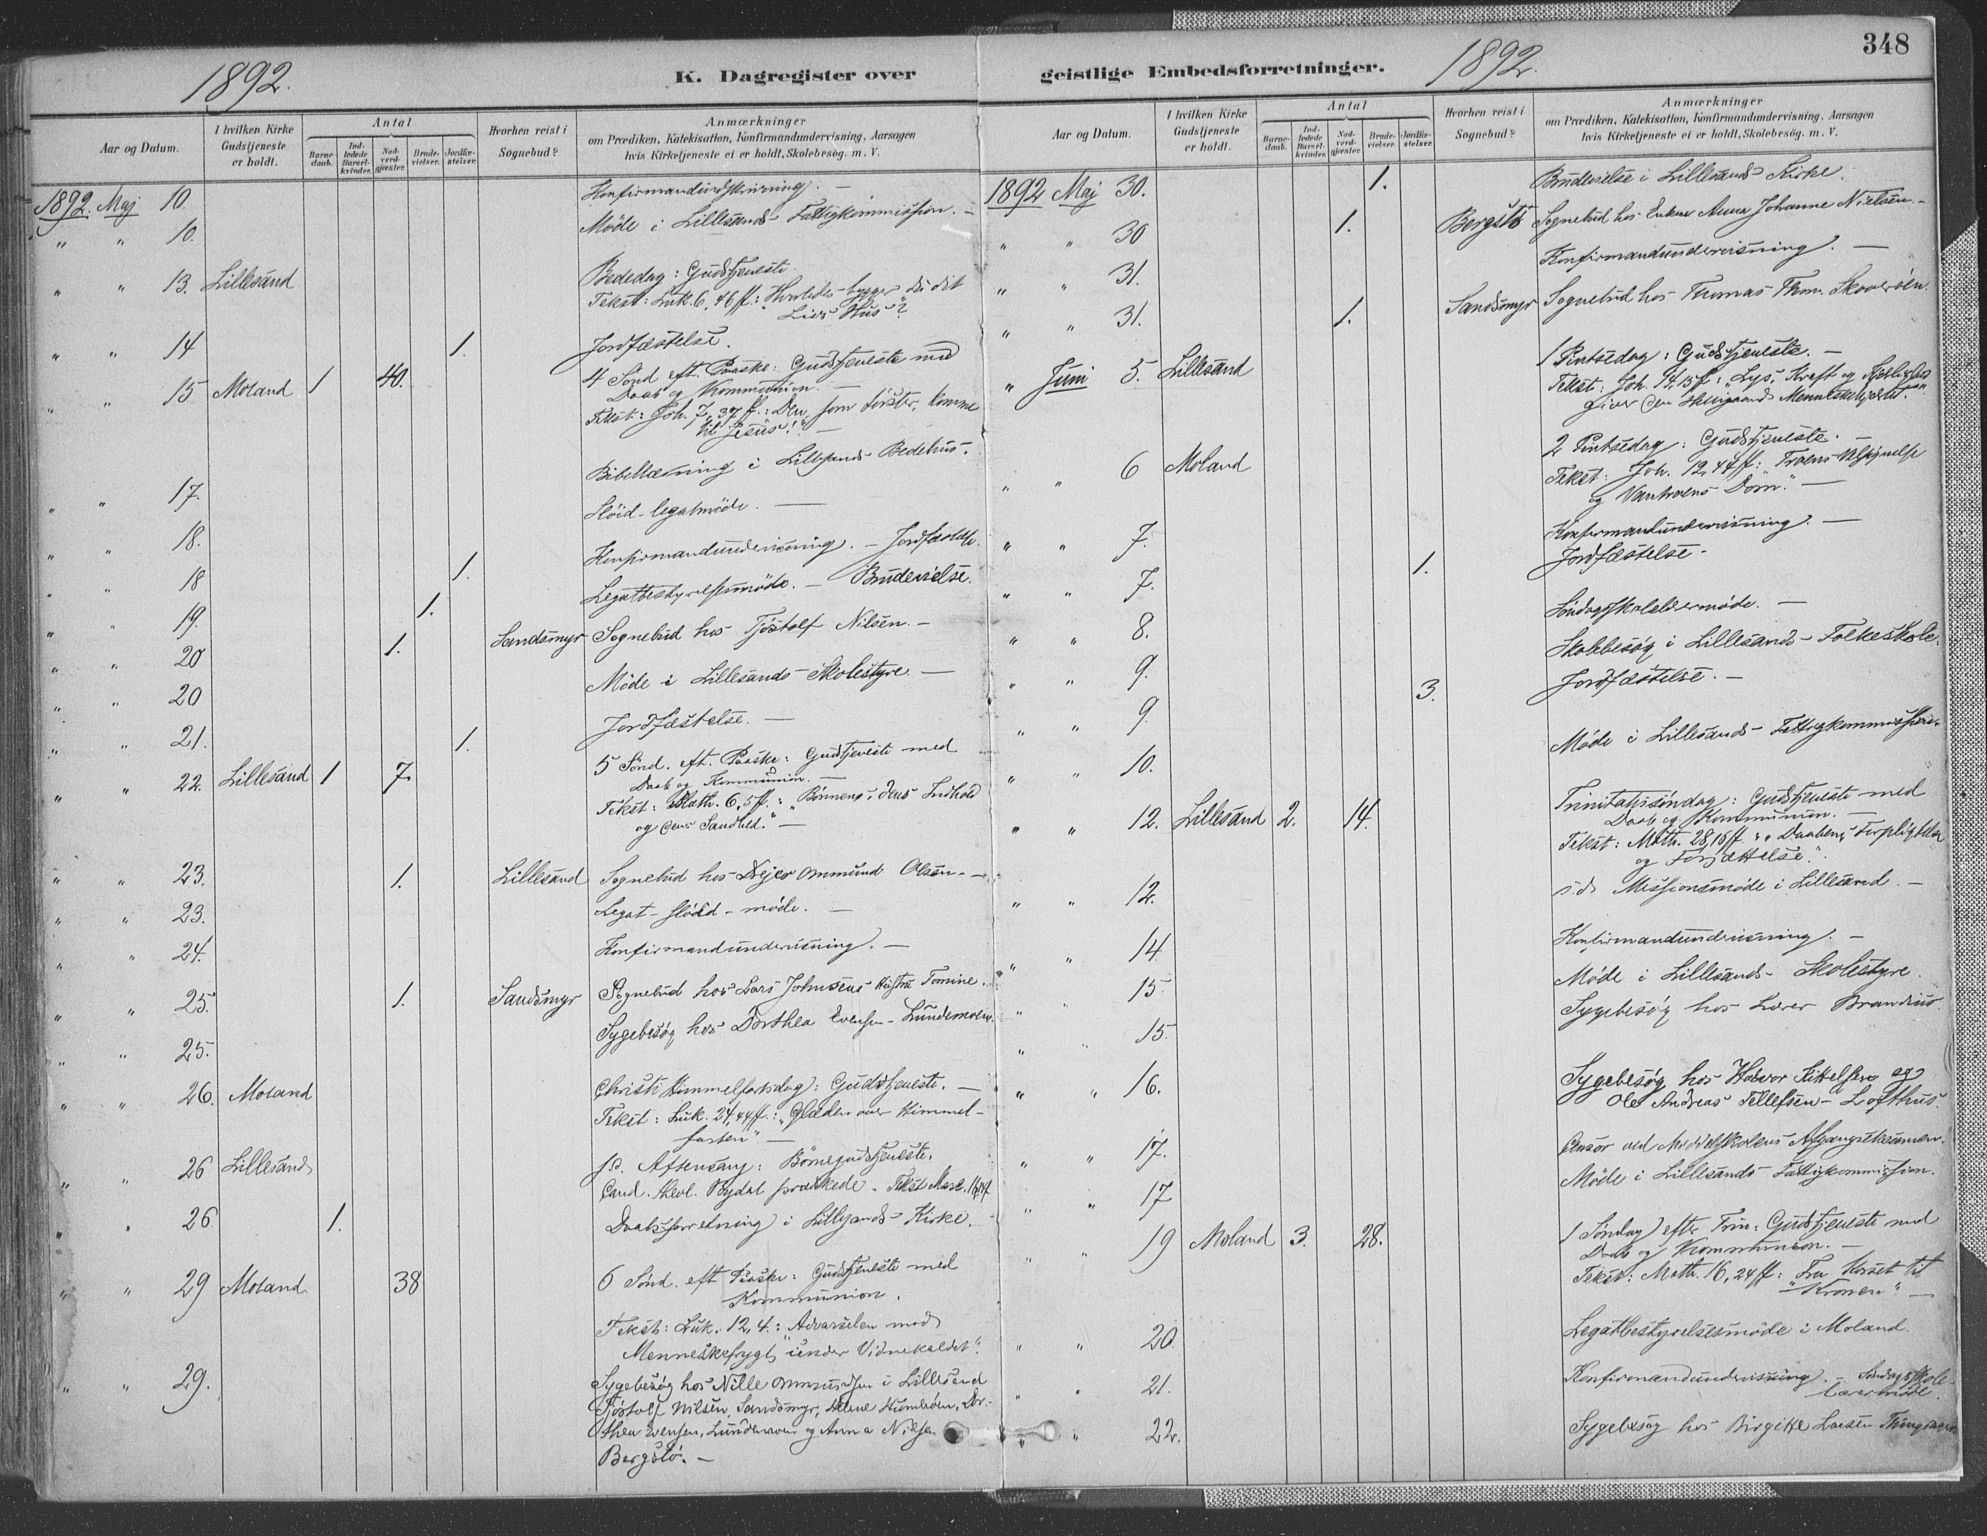 348
1892.
K. Dagregister over
geistlige Embedsforretninger.
1892.
Aar og Datum.
I hvilken Kirke Gudstjeneste er holdt.
Antal
Barnedaab.
Indledede Barselkvinder.
Nadverdgjester.
Brudevielser.
Jordfæstelser.
Hvorhen reist i Sognebud?
Anmærkninger
om Prædiken, Katekisation, Konfirmandundervisning, Aarsagen
hvis Kirketjeneste ei er holdt, Skolebesøg. m. V.
1892. Maj 10. Konfirmandindskrivning. —
" " 10. Møde i Lillesands Fattigkommission. —
" " 13. Lillesand Bededag: Gudstjeneste.
Tekst: Luk. 6, 46 ff.: "Hvorledes bygger du dit
Livs Hus"?
" " 14 1. Jordfæstelse.
" " 15 Moland 1 40. 4 Sønd. eft. Paaske: Gudstjeneste med
Daab og Kommunion. —
Tekst: Joh. 7, 37 ff.: Den, som tørster, komme
til Jesus!" —
Bibellæsning i Lillesands Bedehus.
" " 17. Sløid-legatmøde. —
" " 18. Konfirmandundervisning. — Jordfæstelse.
" " 18 1. Legatbestyrelsesmøde. — Brudevielse.
" " 19. 1.
" " 20 1. Sandsmyr Sognebud hos Tjøstolf Nilsen. —
" " 20 Møde i Lillesands Skolestyre. —
" " 21. 1. Jordfæstelse. —
" " 22. Lillesand 1 7. 5 Sønd. eft. Paaske: Gudstjeneste med
Daab og Kommunion. —
Tekst: Math. 6, 5 ff.: "Bønnens, dens Indhold
og dens Sandhed." —
" " 23. 1. Lillesand Sognebud hos Ommund Olsen. —
" " 23. Legat-sløid-møde. —
" " 24. Konfirmandundervisning. —
" " 25. 1. Sandsmyr Sognebud hos Lars Johnsens Hustru Tomine.
" " 25. Sygebesøg hos Dorthea Evensen - Lundemoen.
" " 26. Moland Christi Himmelfartsdag: Gudstjeneste. —
Tekst: Luk. 24, 44 ff.: "Glæden over Himmel-
farten" —
" " 26 Lillesand s.d. Aftensang: Børnegudstjeneste.
Cand. theol. prædikede. Tekst Marc. 16
" " 26 1. Daabsforretning i Lillesands Kirke.
" " 29 Moland 38 6 Sønd. eft Paaske: Gudstjeneste med
Kommunion.
Tekst: Luk. 12, 4.: "Advarselen mod
Menneskefrygt under Vidnekaldet".
" " 29. Sygebesøg hos Nille Ommundsen i Lillesand
Tjøstolf Nilsen, Sandsmyr, Helene Humleøen, Dor-
thea Evensen, Lundemoen og Anna Nilsen
Bergstø. —
Aar og Datum.
I hvilken Kirke Gudstjeneste er holdt.
Antal
Barnedaab.
Indledede Barselkvinder.
Nadverdgjester.
Brudevielser.
Jordfæstelser.
Hvorhen reist i Sognebud?
Anmærkninger
om Prædiken, Katekisation, Konfirmandundervisning, Aarsagen
hvis Kirketjeneste ei er holdt, Skolebesøg. m. V.
1892 Maj 30. 1. Brudevielse i Lillesands Kirke.
" " 30 1. Bergstø Sognebud hos Enken Anna Johanne Nielsen. —
" " 31. Konfirmandundervisning. —
" " 31. 1. Sandsmyr Sognebud hos Tomas Thom. Skoverøen.
" Juni 5. Lillesand 1 Pintsedag: Gudstjeneste. —
Tekst: Joh. 14, 15 ff: "Lys, Kraft og Kjærlighed
giver den Helligaand Menneskehjertet."
" " 6 Moland 2 Pintsedag: Gudstjeneste.
Tekst: Joh. 12, 44 ff: "Troens Velsignelse
og Vantroens Dom." —
" " 7. Konfirmandundervisning. —
" " 7. 1. Jordfæstelse. —
" " 8. Søndagsskolelærermøde. —
" " 9. Skolebesøg i Lillesands Folkeskole.
" " 9. 3. Jordfæstelse. —
" " 10. Møde i Lillesands Fattigkommission.
" " 12. Lillesand 2. 14. Trinitatissøndag: Gudstjeneste med
Daab og Kommunion. —
Tekst: Math. 28, 18 ff: "Daabens Forpligtelse
og Forjættelse."
" " 12. s.d. Missionsmøde i Lillesand. —
" " 14 Konfirmandundervisning. —
" " 15. Møde i Lillesands Skolestyre.
" " 15. Sygebesøg hos Lærer
" " 16. Sygebesøg hos Halvor Kittelsen og
Ole Andreas Tellefsen - Lofthus.
" " 17. Censor ved Middelskolens Afgangseksamen.
" " 17 Møde i Lillesands Fattigkommission.
" " 19 Moland 3. 28. 1 Søndag efter Trin: Gudstjeneste med
Daab og Kommunion. —
Tekst: Math. 16, 24 ff: "Fra Korset til
Kronen" —
" " 20. Legatbestyrelsesmøde i Moland.
" " 21. Konfirmandundervisning. — Søndagsskole-
lærermøde.
" " 22. Sygebesøg hos Birgitte Larsen